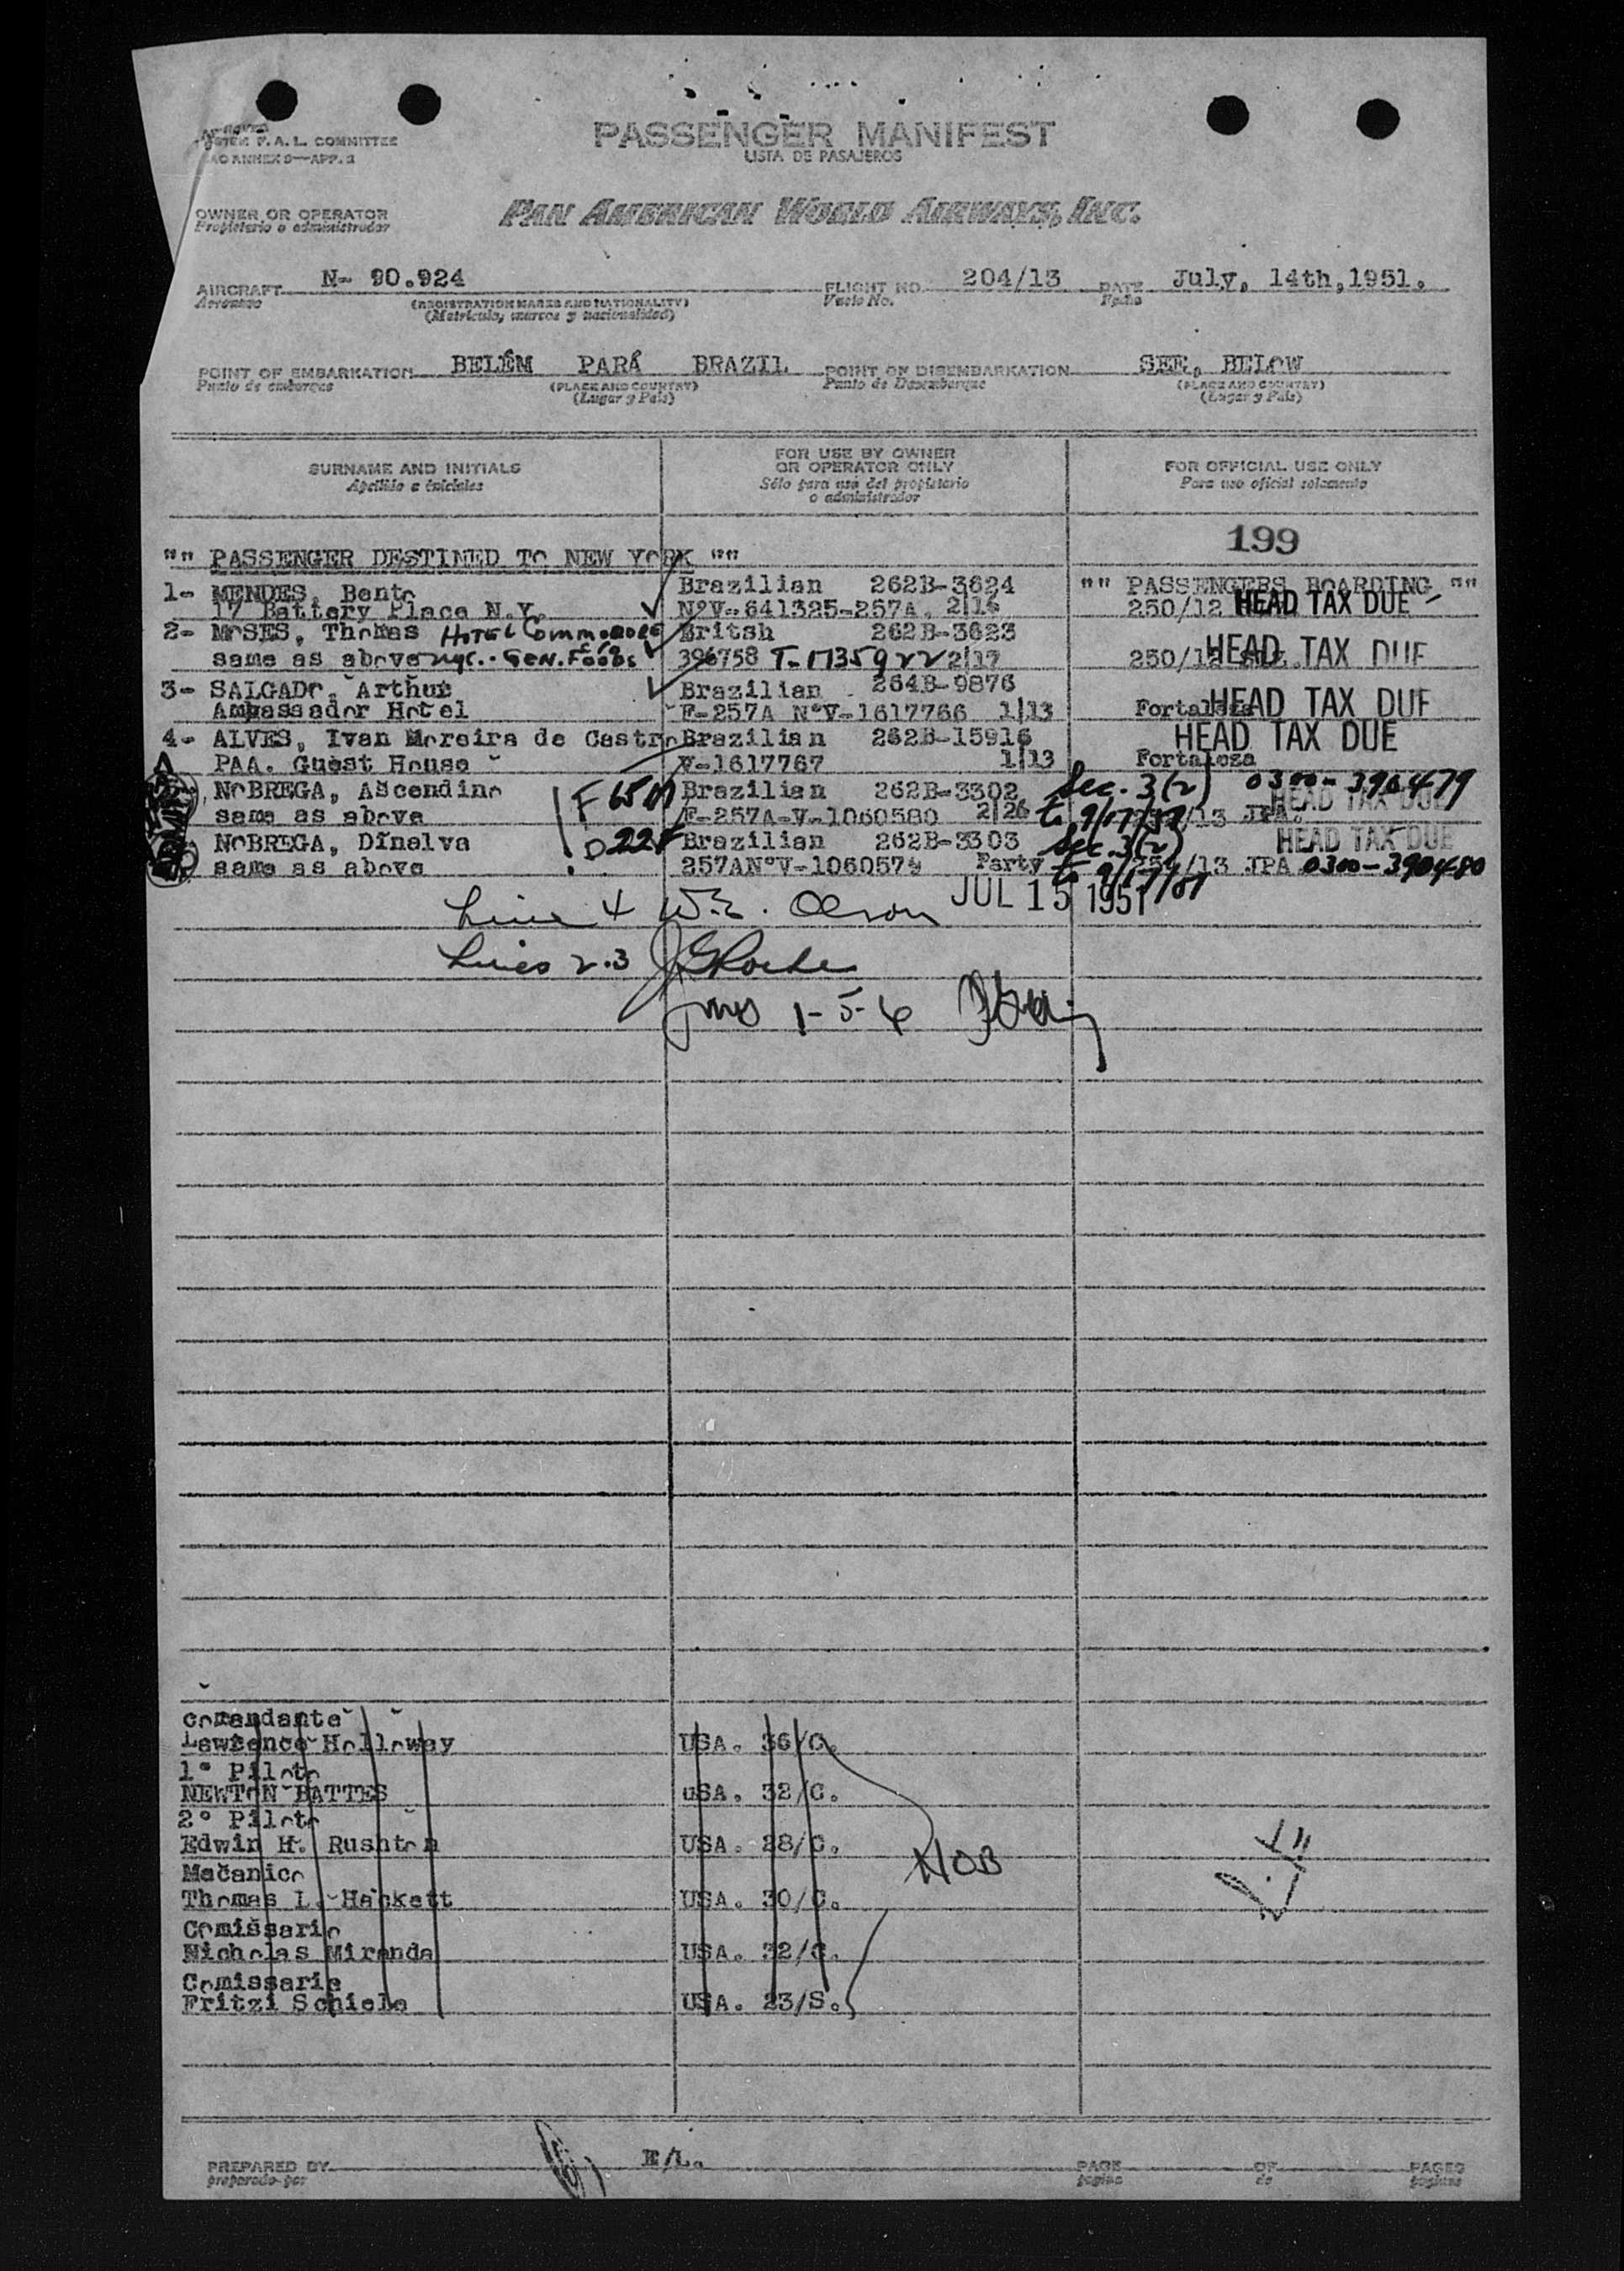 F.A.L. COMMITTEE
ANNEX 9—APP. 2
PASSENGER MANIFEST
LISTA DE PASAJEROS
OWNER OR OPERATOR
Propietario o administrador
PAN AMERICAN WORLD AIRWAYS, INC.
AIRCRAFT N- 90.924 FLIGHT NO. 204/13 DATE July, 14th,1951.
Aeronave (REGISTRATION MARKS AND NATIONALITY) Vuelo No. Fecha
(Matricula, marcas y nacionalidad)
POINT OF EMBARKATION BELÉM PARÁ BRAZIL POINT OF DISEMBARKATION SEE, BELOW
Punto de embarque (PLACE AND COUNTRY) Punto de Desembarque (PLACE AND COUNTRY)
(Lugar y País) (Lugar y País)
SURNAME AND INITIALS FOR USE BY OWNER OR OPERATOR ONLY FOR OFFICIAL USE ONLY
Apellido e iniciales Sólo para uso del propietario o administrador Para uso oficial solamente
199
"" PASSENGER DESTINED TO NEW YORK ""
1- MENDES, Bento Brazilian 262B-3624 "" PASSENGERS BOARDING ""
17 Battery Place N.Y. NºV-641325-257A. 2/16 250/12 HEAD TAX DUE
2- MOSES, Thomas HOTEL COMMODORE Britsh 262B-3623
same as above NYC.. GEN. FOODS 396758 T-1735922 2/17 250/12 HEAD TAX DUE
3- SALGADO, Arthur Brazilian 264B-9876
Ambassador Hotel F-257A NºV-1617766 1/13 Fortaleza HEAD TAX DUE
4- ALVES, Ivan Moreira de Castro Brazilian 262B-15916 HEAD TAX DUE
PAA. Guest House V-1617767 1/13 Fortaleza
NOBREGA, Ascendino F 65M Brazilian 262B-3302 Sec. 3(2) 0300-390479
same as above F-257A-V-1060580 2/26 to 9/17/51 /13 JPA. HEAD TAX DUE
NOBREGA, Dinalva D 22F Brazilian 262B-3303 Sec. 3(2) HEAD TAX DUE
same as above 257ANºV-1060579 Party to 9/17/51 254/13 JPA 0300-390480
JUL 15 1951
Line 4 W.E. Olson
Lines 2.3
1-5-6
Comandante
Lawrence Holloway USA. 36/C.
1º Piloto
NEWTON BATTES uSA. 32/C.
2º Piloto
Edwin H. Rushton USA. 28/C.
NOB
Mecanico
Thomas L. Hackett USA. 30/C.
Comissario
Nicholas Miranda USA. 32/C.
Comissaria
Fritzi Schiele USA. 23/S.
PREPARED BY E/L. PAGE OF PAGES
preparado por pagina de paginas